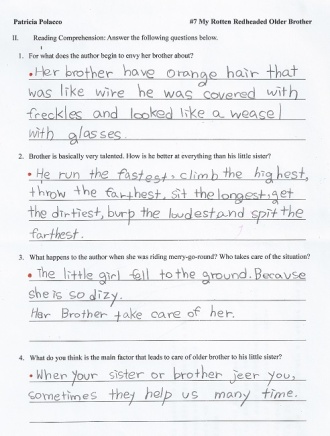 Patricia Polacco #7 My Rotten Redheaded Older Brother
II. Reading Comprehension: Answer the following questions below.
1. For what does the author begin to envy her brother about?
• Her brother have orange hair that
was like wire he was covered with
freckles and looked like a weasel
with glasses.
2. Brother is basically very talented. How is he better at everything than his little sister?
• He run the fastest, climb the highest,
throw the farthest, sit the longest, get
the dirtiest, burp the loudest and spit the
farthest.
3. What happens to the author when she was riding merry-go-round? Who takes care of the situation?
• The little girl fell to the ground. Because
she is so dizy.
Her Brother take care of her.
4. What do you think is the main factor that leads to care of older brother to his little sister?
• When your sister or brother jeer you,
sometimes they help us many time.